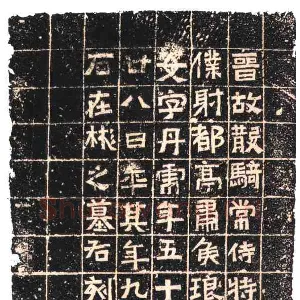 晉故散騎常侍特
僕射都亭肅侯琅
女字丹虎年五十
廿八日卒其年九
石在彬之墓右刻